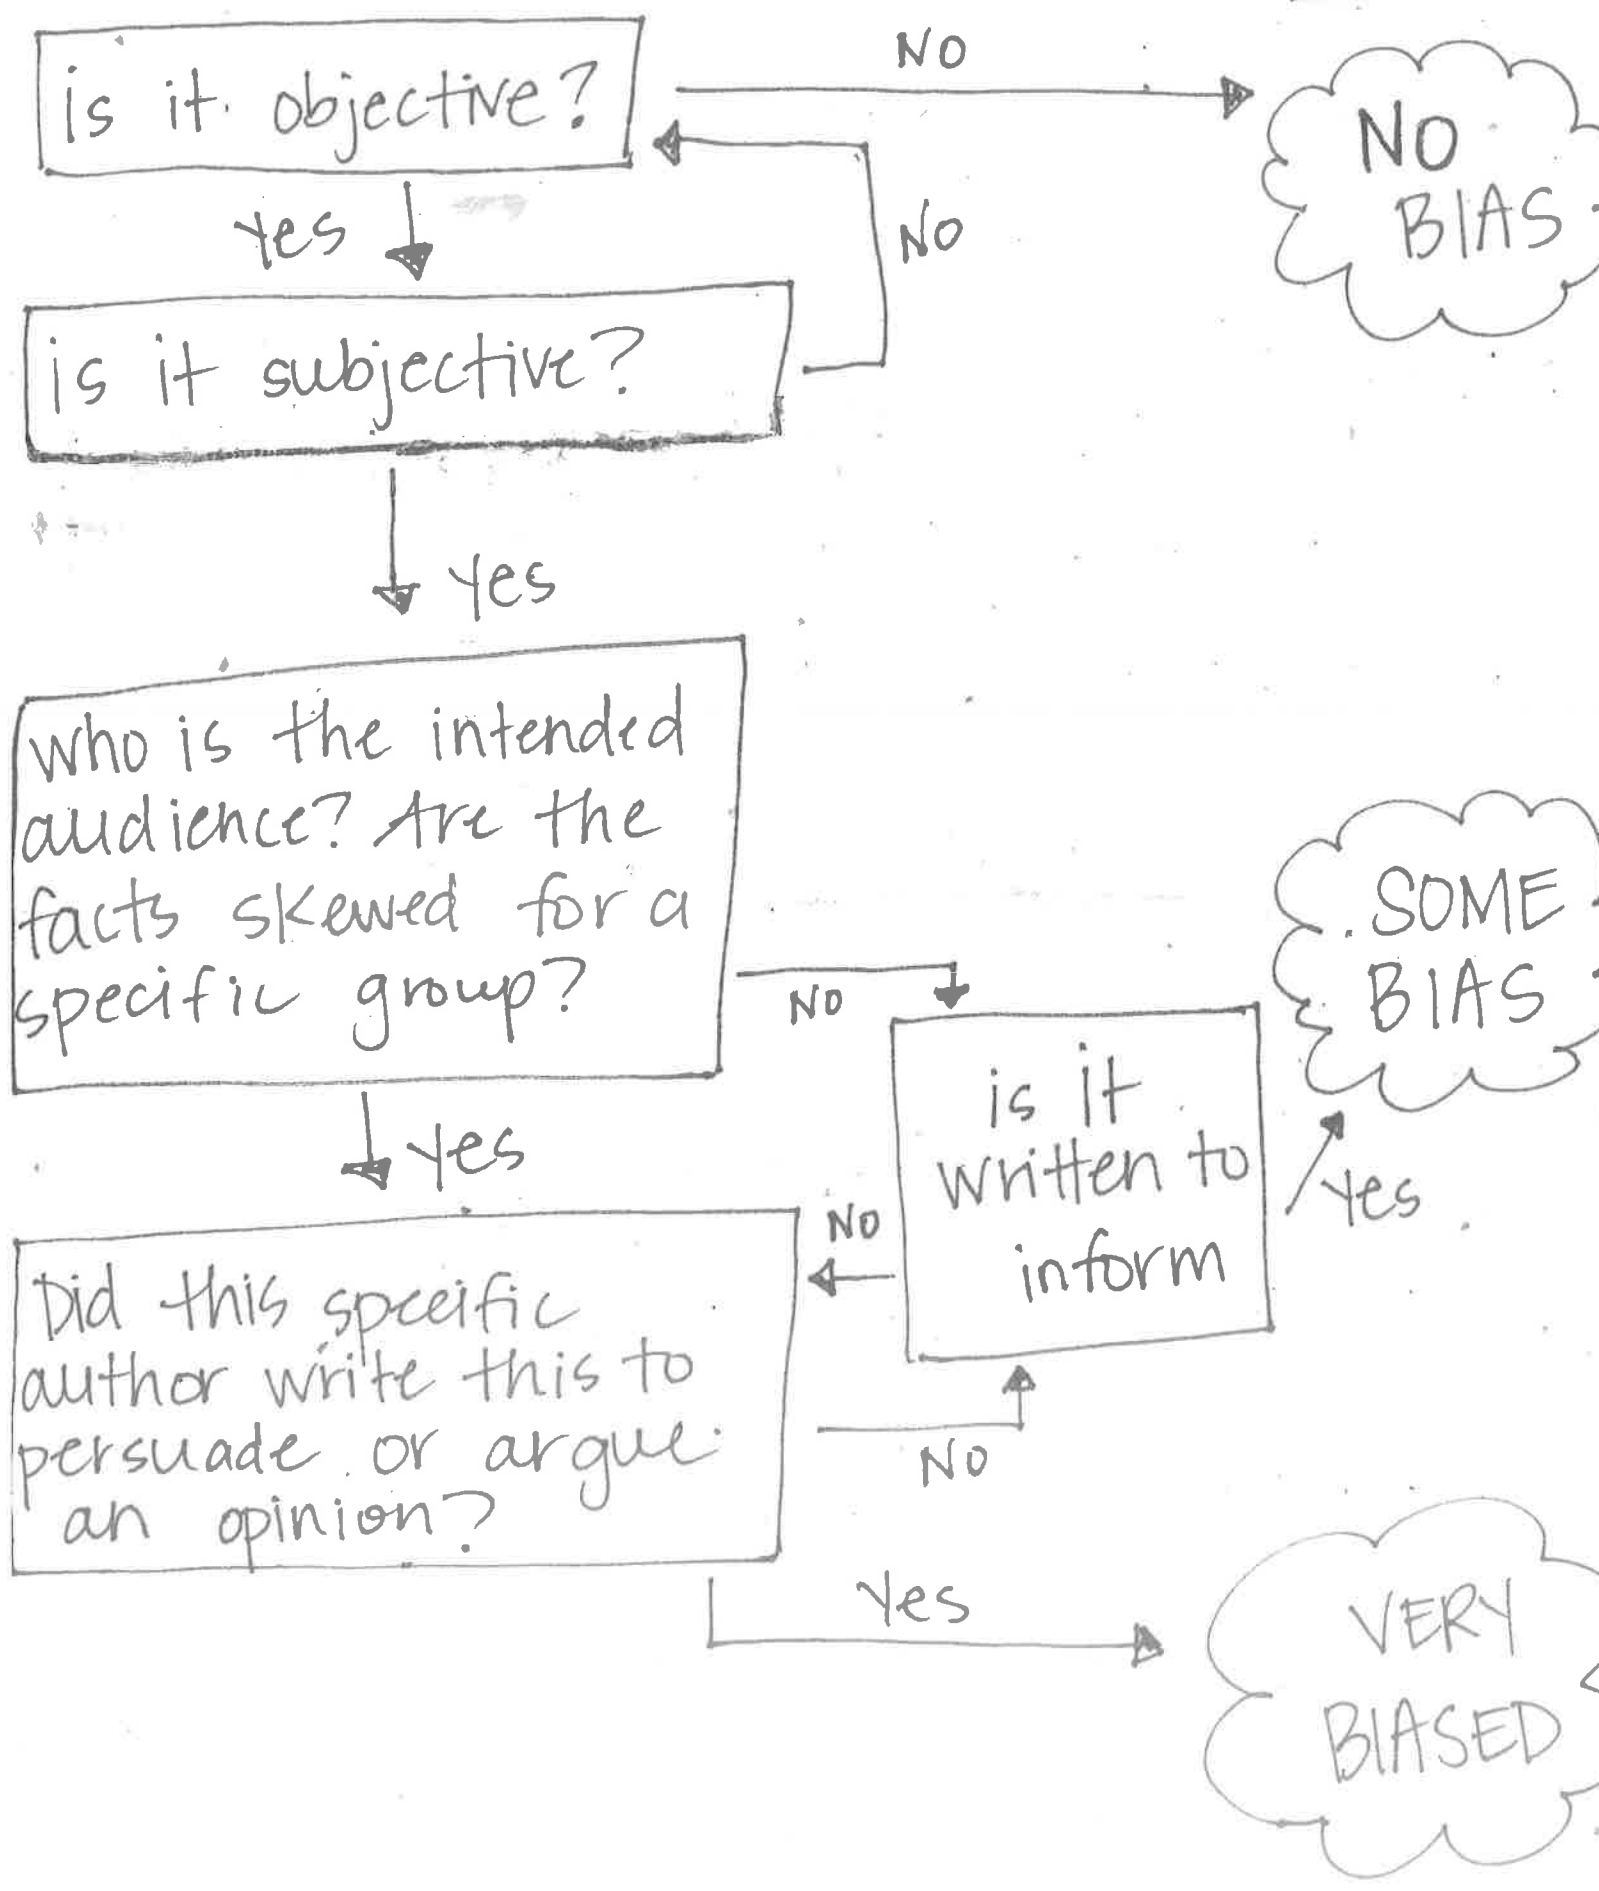 is it objective?
NO
NO
BIAS
Yes
NO
is it subjective?
Yes
who is the intended
audience? Are the
facts skewed for a
specific group?
NO
SOME
BIAS
is it
written to
inform
Yes
Yes
NO
Did this specific
author write this to
persuade or argue
an opinion?
NO
Yes
VERY
BIASED